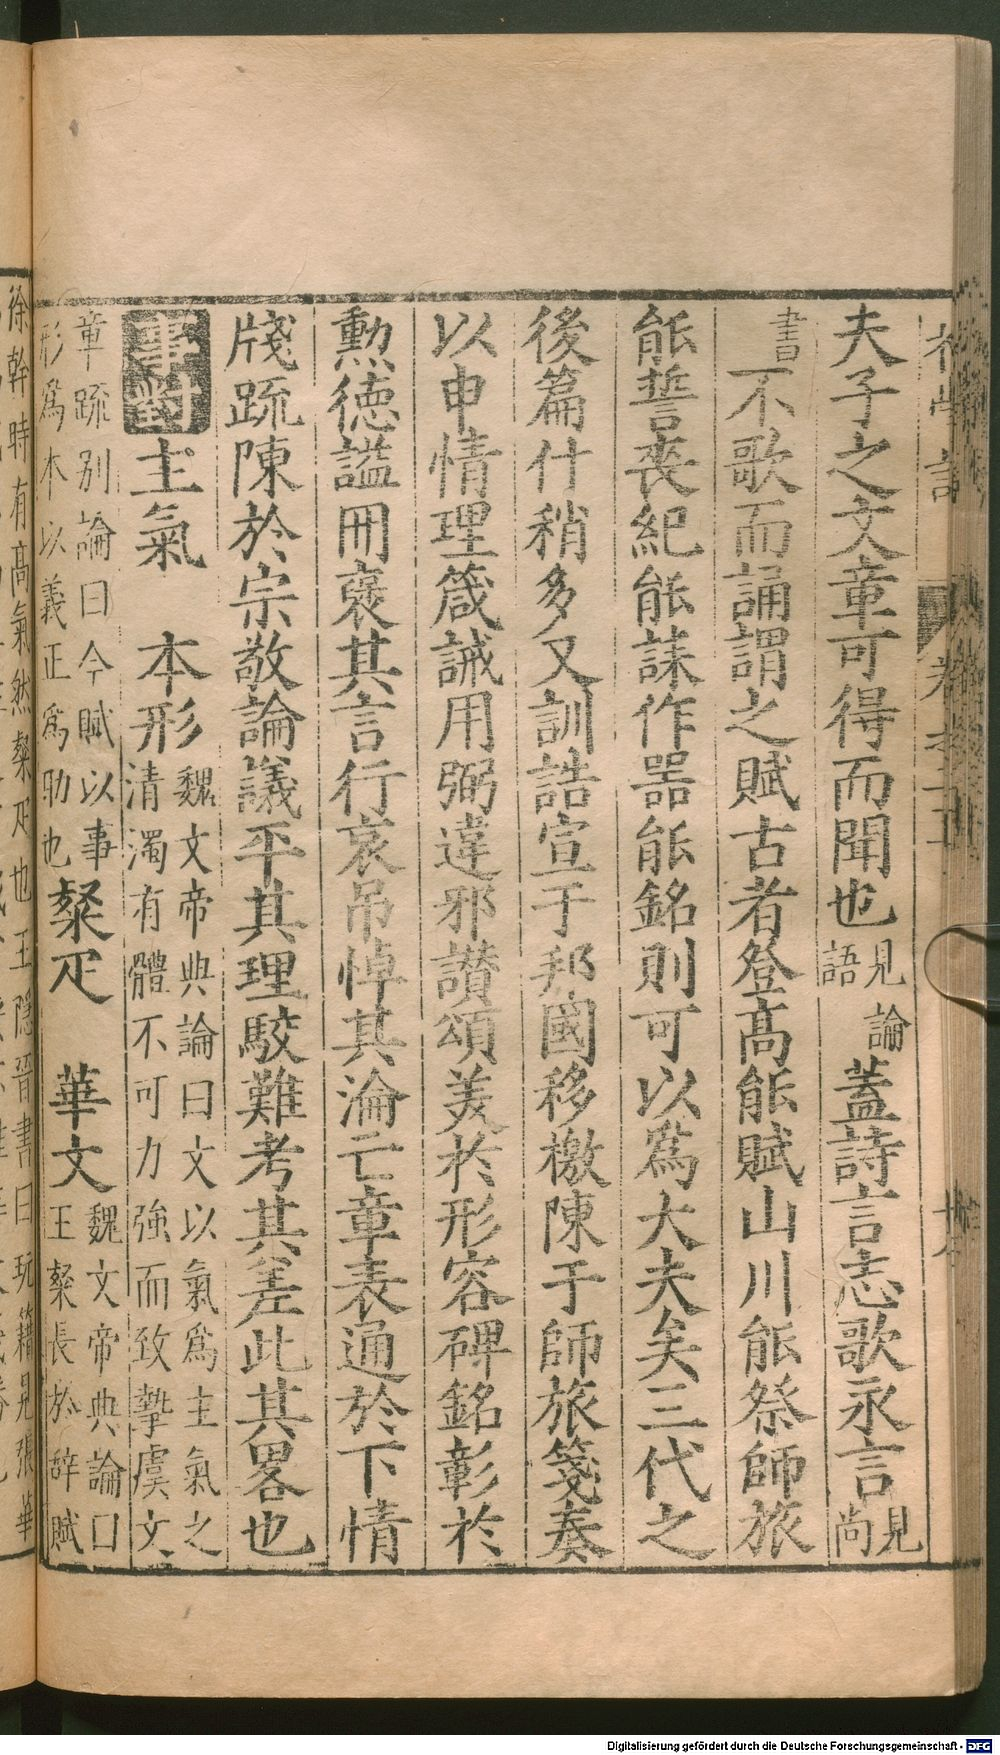 夫子之文章可得而聞也見論語蓋詩言志歌永言見尚
書不歌而誦謂之賦古者登髙能賦山川能祭師旅
能誓喪紀能誄作器能銘則可以爲大夫矣三代之
後篇什稍多又訓誥宣于邦國移檄陳于師旅箋奏
以申情理箴誡用弼違邪讃頌美於形容碑銘彰於
勲徳謚冊褒其言行哀吊悼其淪亡章表通於下情
牋疏陳於宗敬論議平其理駮難考其差此其畧也
事對 主氣 本形魏文帝典論曰文以氣爲主氣之清濁有體不可力強而致摯虞文
章疏别論曰今賦以事形爲本以義正爲助也粲疋 華文魏文帝典論曰王粲長於辭賦
徐幹時有髙氣然粲疋也王隱晉書曰阮籍見張華
Digitalisierung gefördert durch die Deutsche Forschungsgemeinschaft - DFG